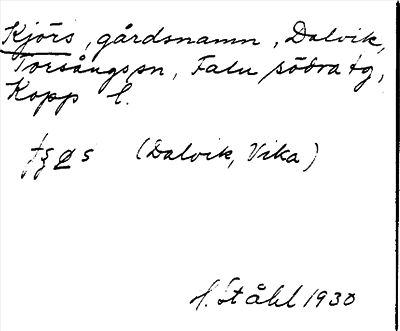 Kjörs, gårdsnamn, Dalvik,
Torsångs sn, Falu södra tg,
Kopp l.
(Dalvik, Vika)
H. Ståhl 1930